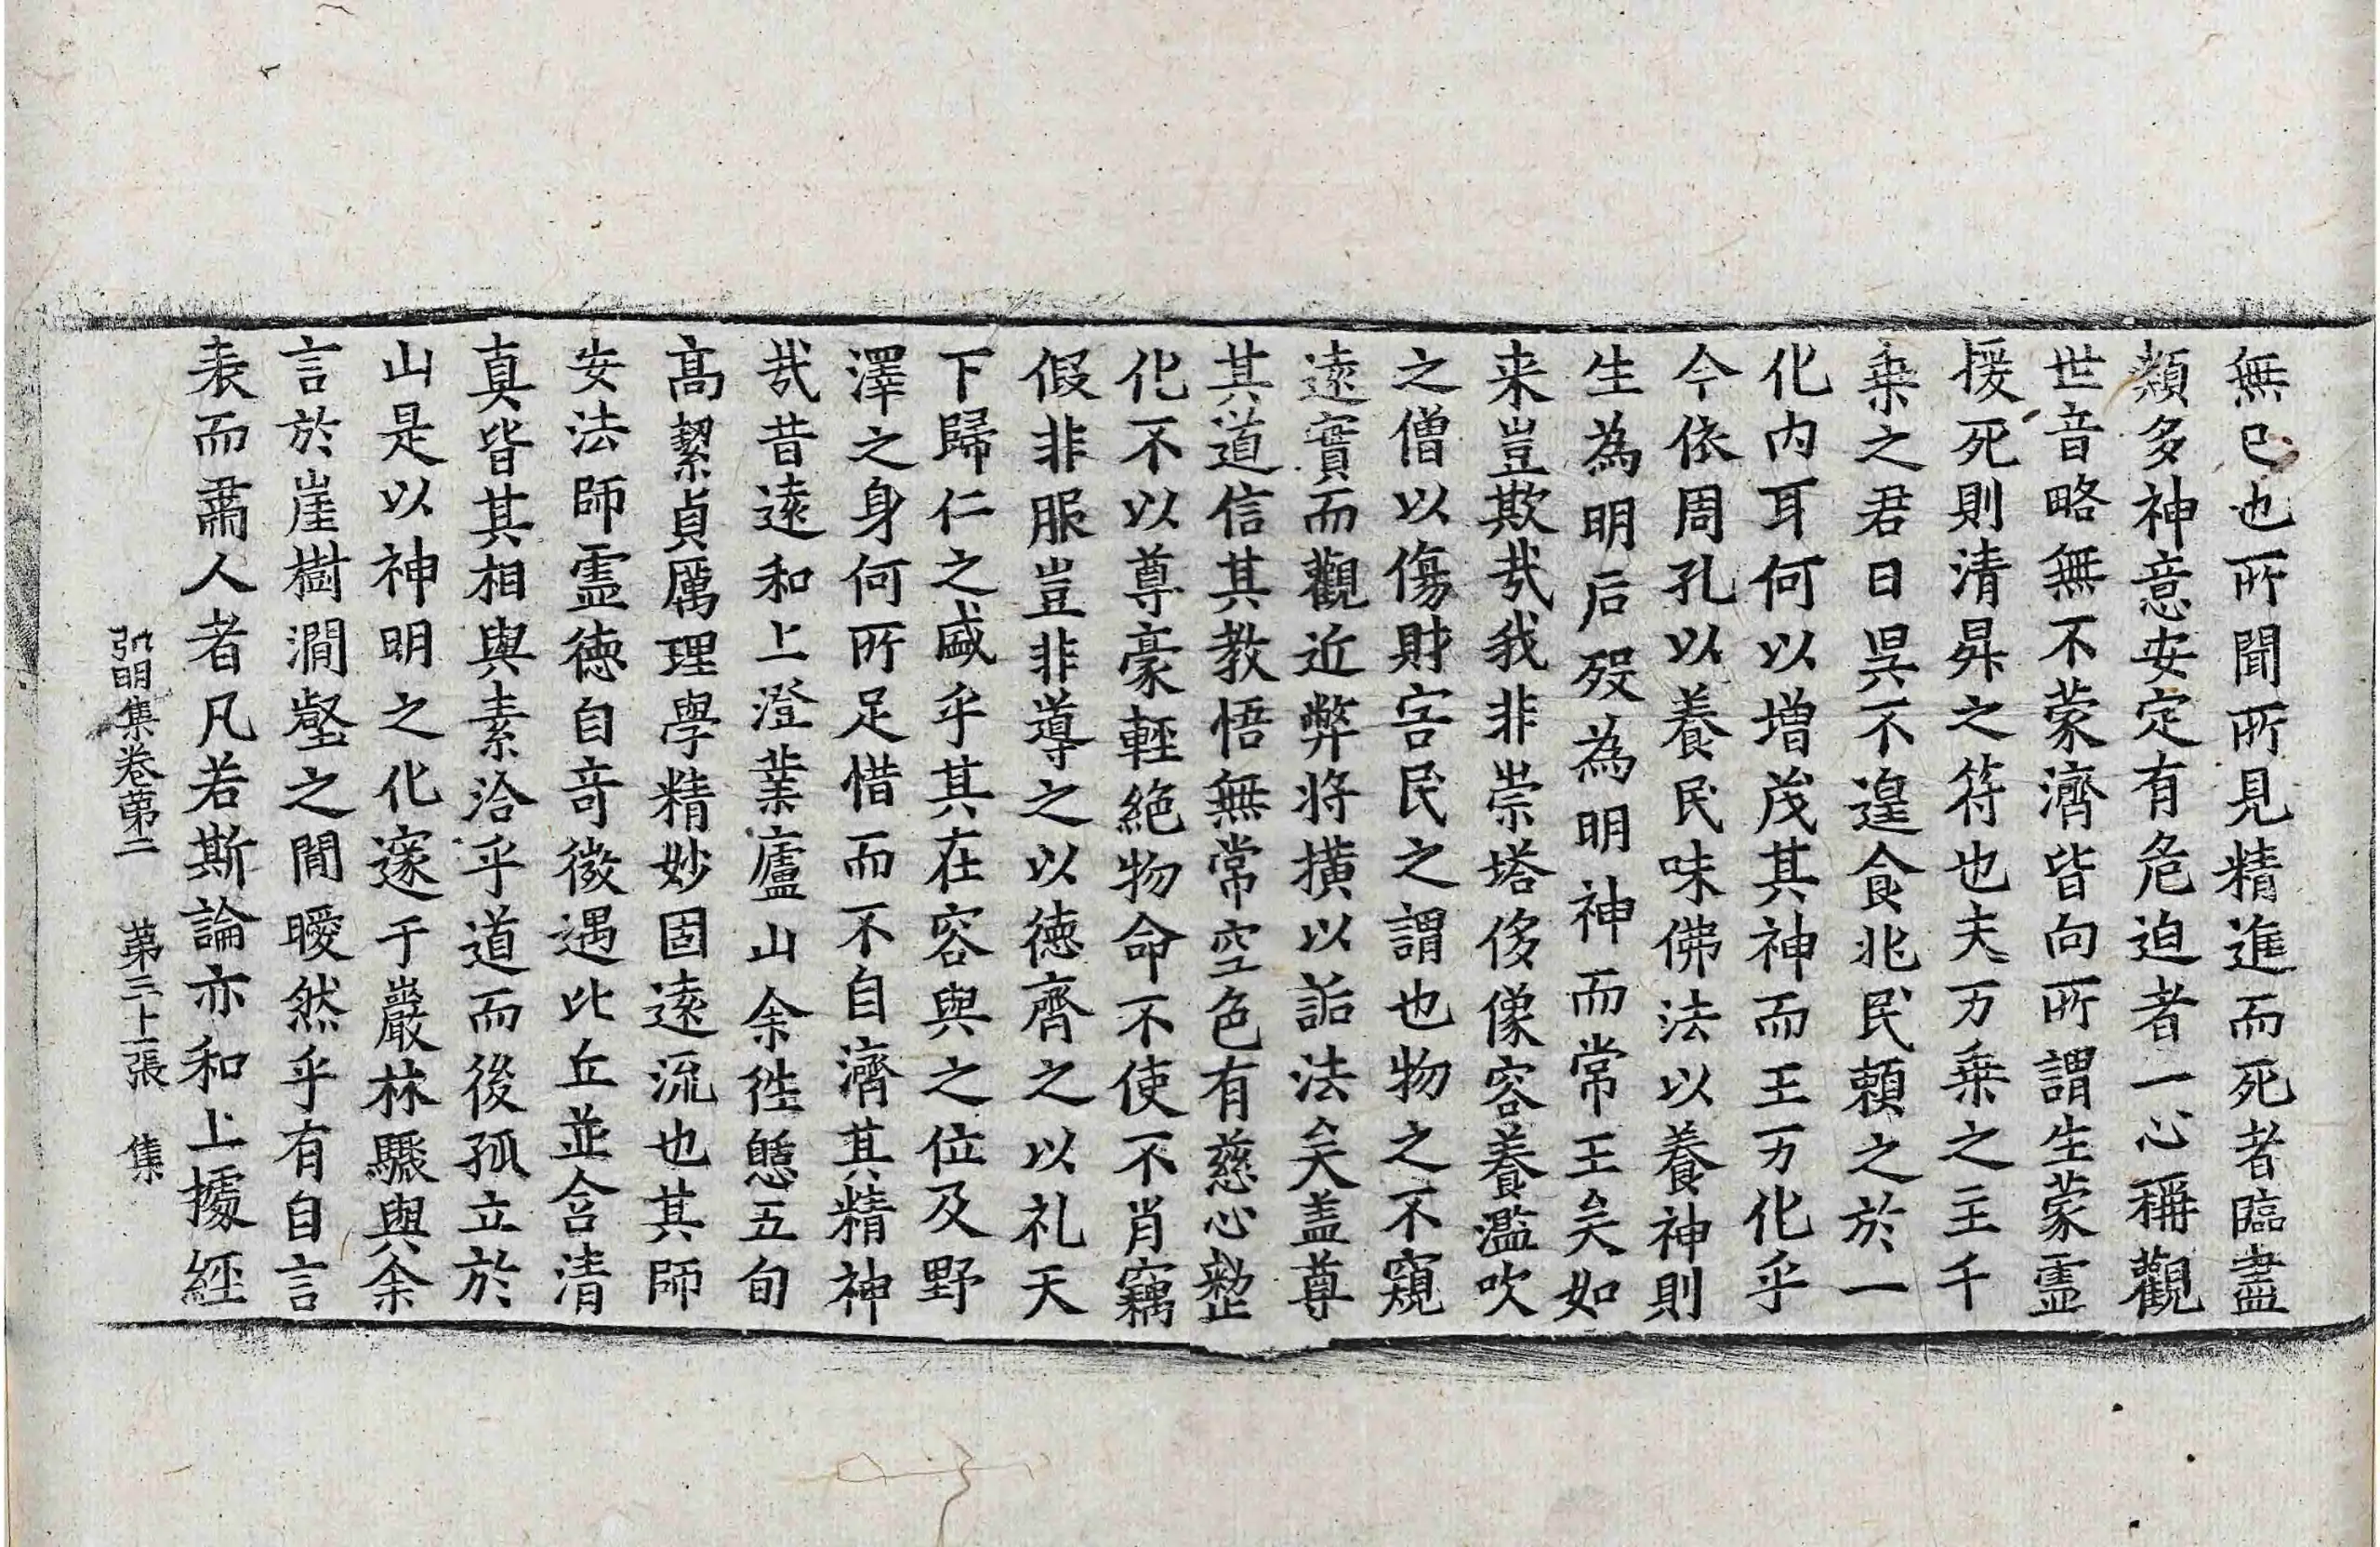 無已也所聞所見精進而死者臨盡
類多神意安定有危迫者一心稱觀
世音略無不蒙濟皆向所謂生蒙靈
援死則清昇之符也夫万乗之主千
乗之君日昃不遑食兆民頼之於一
化内耳何以増茂其神而王万化乎
今依周孔以養民味佛法以養神則
生為明后歿為明神而常王矣如
来豈欺㢤我非崇塔侈像容養濫吹
之僧以傷財害民之謂也物之不窺
遠實而觀近弊将撗以詬法矣盖尊
其道信其教悟無常空色有慈心整
化不以尊豪輕絶物命不使不肖竊
假非服豈非導之以徳齊之以礼天
下歸仁之盛乎其在容與之位及野
澤之身何所足惜而不自濟其精神
㢤昔遠和上澄業廬山余徃憩五旬
髙絜貞厲理學精妙固遠流也其師
安法師霊徳自竒㣲遇比丘並含清
真皆其相與素洽乎道而後孤立於
山是以神明之化邃于巖林驟與余
言於崖樹澗壑之間曖然乎有自言
表而肅人者凡若斯論亦和上據經
弘明集卷第二 第三十二張 集